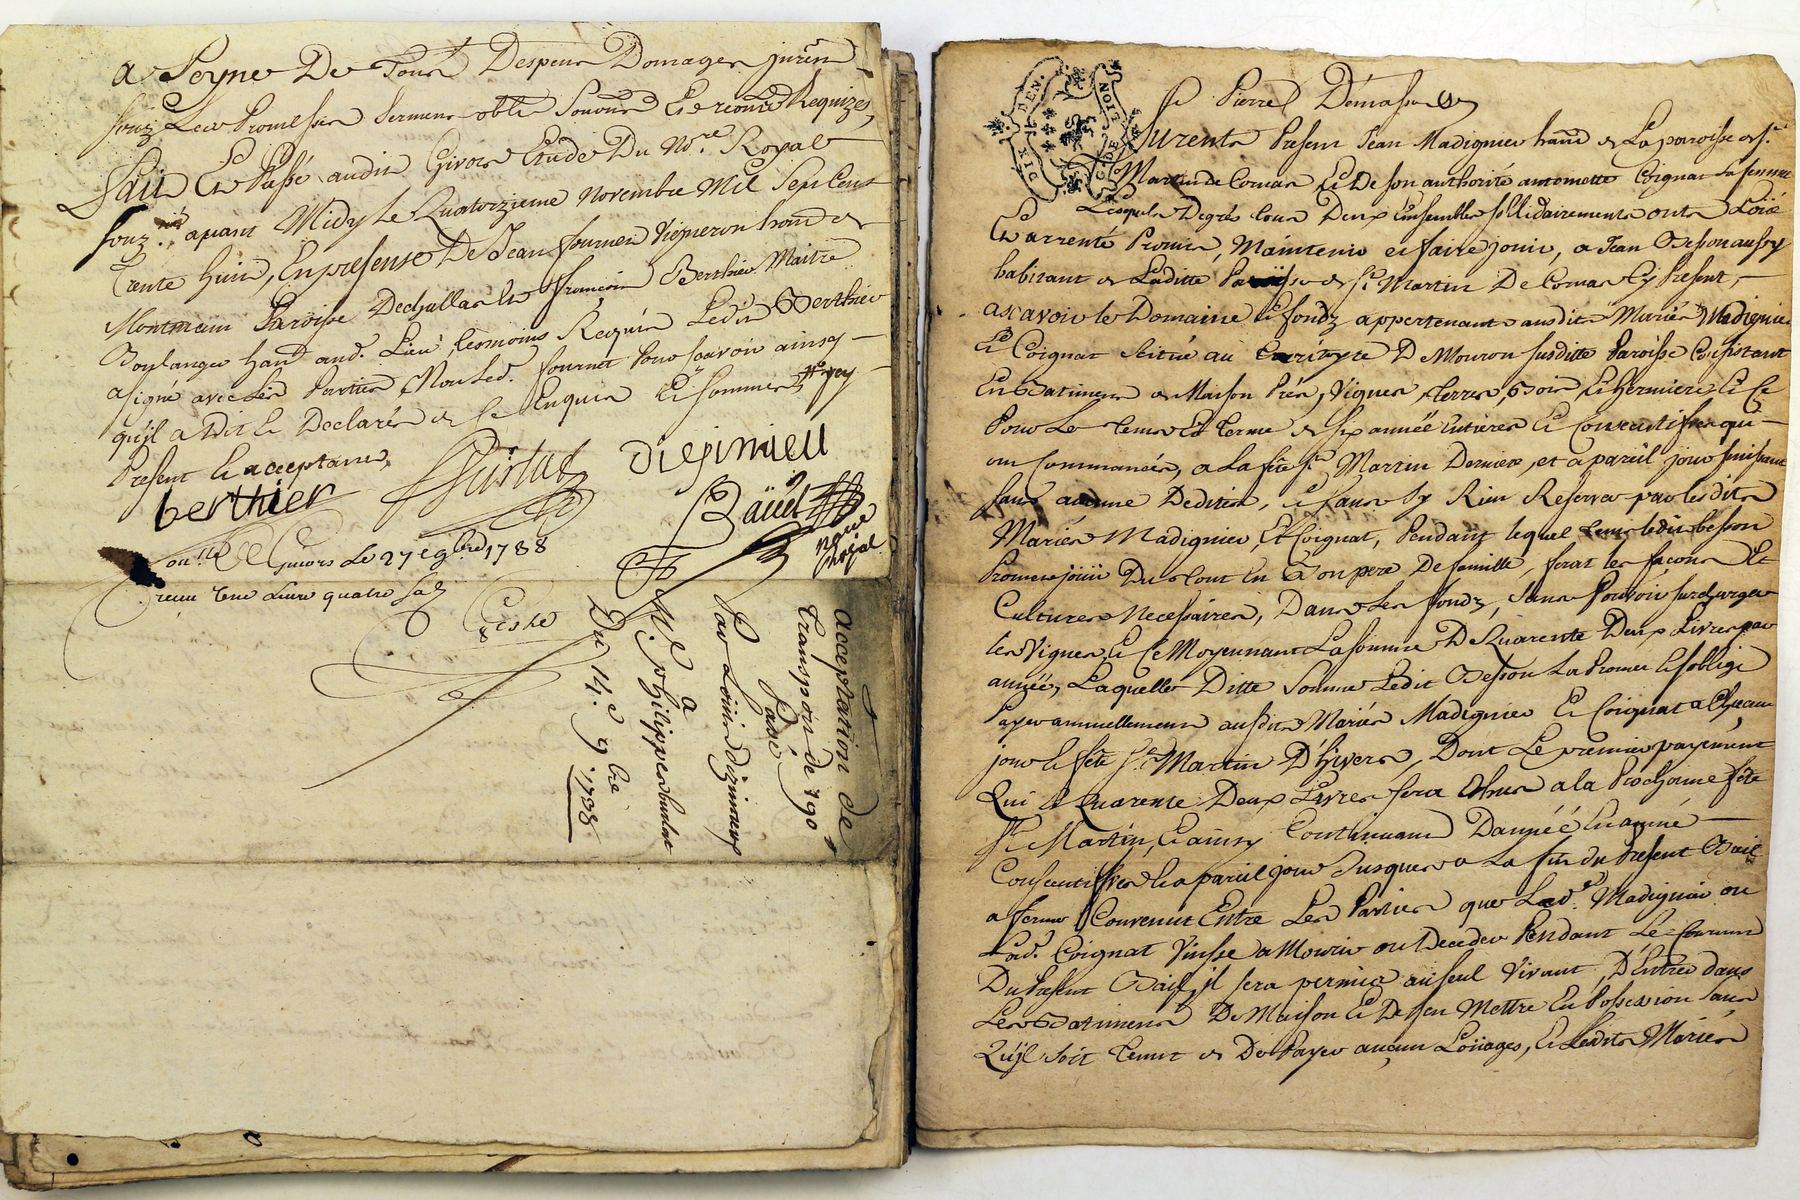 a Peyne De Tous Despens Domages jurés
souz Les Promesses Serment obli Soumis Et renon Requizes,
Fait Et Passé audit Givors Etude Du No.re Royal
souz.né avant Midy Le Quatorzieme Novembre Mil Sept Cent
Trente huit, En presense De Jean fournier Vigneron hant de
Montmain Paroisse Dechassas Et françois Berthier Maitre
Boulanger hant aud. Lieu, temoins Requis Ledit Berthier
a signé avec Les Parties Non Led. fournier Pour ne sçavoir ainsy
qu'il a Dit Et Declaré de ce Enquis Et sommé
Present Et acceptant,
berthier
Dizimieu
Bauel
no.re
royal
Con.llé a Givors Le 27 9bre 1738
receu une Livre quatre sols
acceptation de
transport de 190
Passé
Par Loüis dizimieux
a
Sr. philippe
Du 14.e 9.bre
1738
DIX DEN.
G. DE LION
Pierre Démasses
Furent Present Jean Madignier hant de La paroisse de St.
Martin de Cornas Et De son authorité antomette Coignat La femme
Lesquels De grés tous Deux Ensembles sollidairement ont Loüé
Et arrenté Promis, Maintenir et faire jouir, a Jean Besson aussy
habitant de Laditte Paroisse de St. Martin De Cornas Cy Present,
ascavoir le Domaine Et fondz appertenant ausdits Mariés Madignier
Et Coignat Scitué au Territoyre De Mouron susditte Paroisse Consistant
En Batiment de Maison Prés, Vignes, terres, Bois, Et hermiere Et Ce
Pour Le tems Et terme de six année Entieres Et Consecutifves qui
on Commancés, a La fête St. Martin Derniere, et a pareil jour finissant
sans aucune Dedition, Et sans sy Rien Reserver par lesdits
Mariés Madignier, Et Coignat, Pendant lequel tems ledit besson
Promet joüir Du tout En Bon pere De famille, ferat les façons Et
Cultures Necessaires, Dans Les fondz, sans Pouvoir surcharger
les Vignes, Et Ce Moyennant La somme De Quarente Deux Livres par
année, Laquelle Ditte Somme Ledit Besson La Promet Et s'oblige
Payer annuellement ausdits Mariés Madignier Et Coignat a Chacun
jour Et fête St. Martin D'hivers, Dont Le premier payement
Qui De Quarente Deux Livres sera Echus a la Prochaine fête
St. Martin, Et ainsy Continuant D'année En année
Consecutifves Et a pareil jour Jusques a La fin du Present Bail
a ferme Convenut Entre Les Parties que Led. Madignier ou
Lad. Coignat Vinsse a Mourir ou Deceder Pendant Le Courant
Du Present Bail, il sera permis au seul Vivant, D'Entrer dans
Les Batiment De Maison Et De s'en Mettre En Possession sans
Qu'il soit tenut de De Payer auçun Loüages, Et Lesdits Mariés